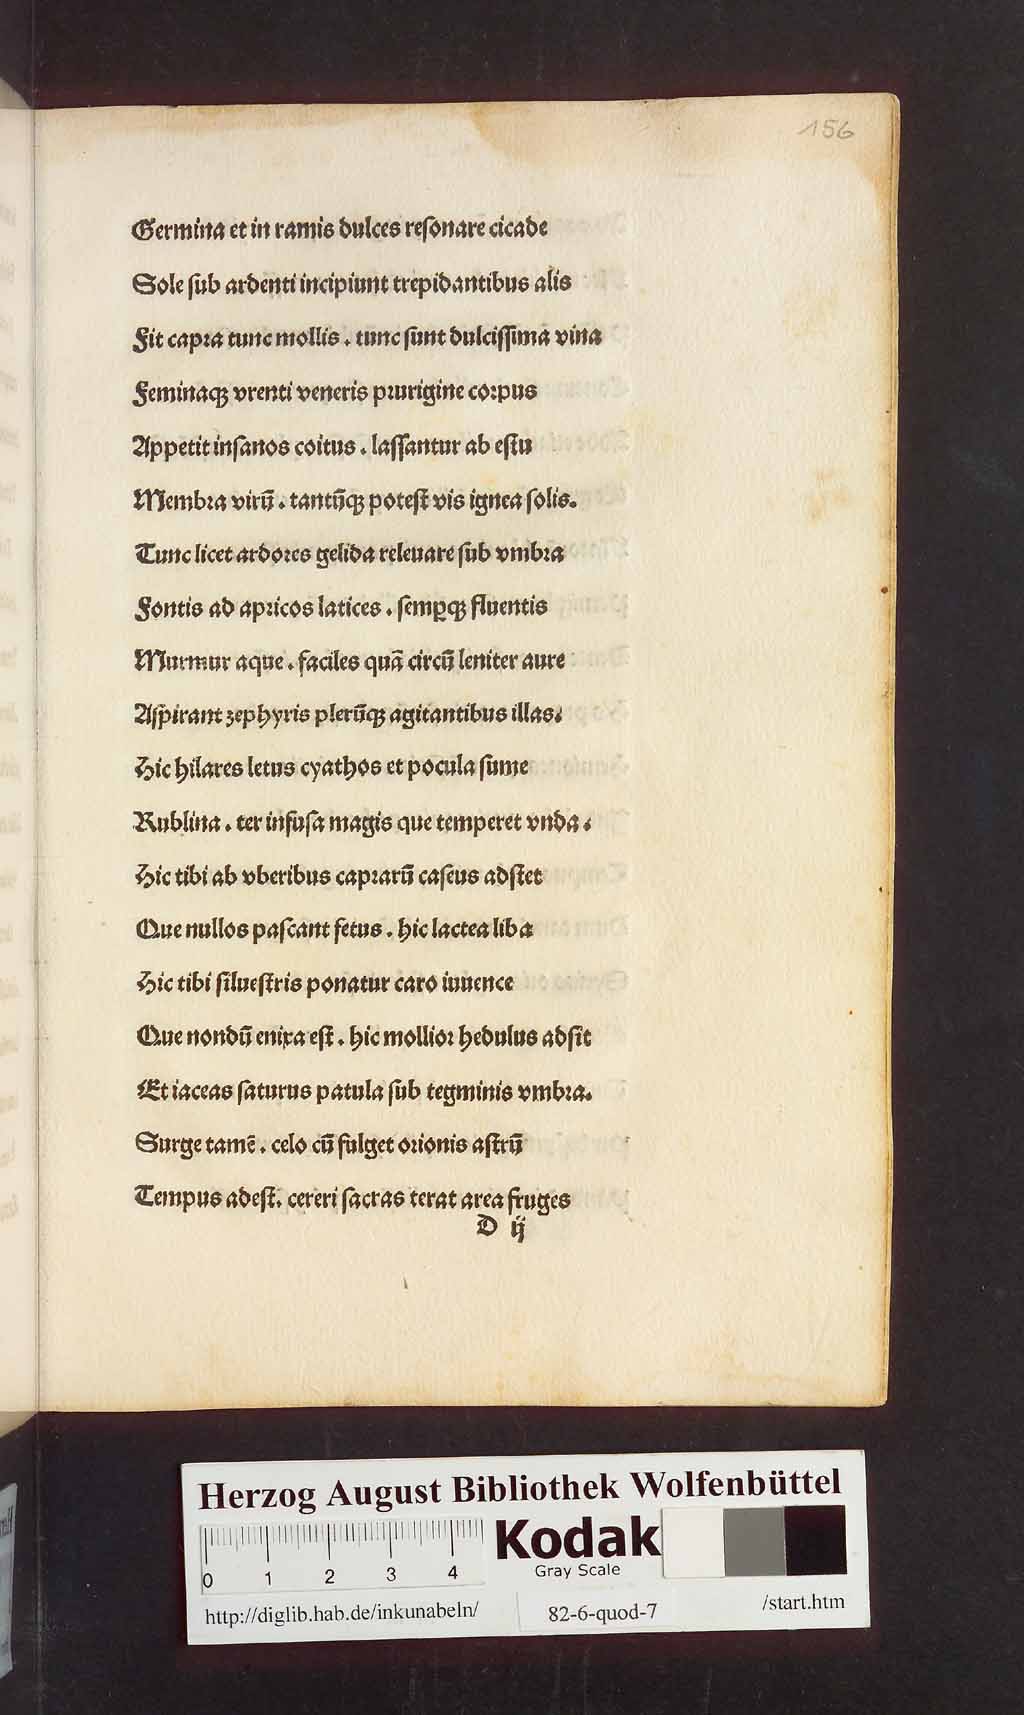 156
Germina et in ramis dulces reſonare cicade
Sole ſub ardenti incipiunt trepidantibus alis
Fit capra tunc mollis . tunc ſunt dulciſſima vina
Feminaqꝫ vrenti veneris prurigine corpus
Appetit inſanos coitus . laſſantur ab eſtu
Membra virū . tantūqꝫ poteſt vis ignea ſolis.
Tunc licet ardores gelida releuare ſub vmbra
Fontis ad apricos latices . ſemꝑqꝫ fluentis
Murmur aque . faciles quā circū leniter aure
Aſpirant zephyris plerūqꝫ agitantibus illas.
Hic hilares letus cyathos et pocula ſume
Rublina . ter infuſa magis que temperet vnda.
Hic tibi ab vberibus caprarū caſeus adſtet
Que nullos paſcant fetus . hic lactea liba
Hic tibi ſilueſtris ponatur caro iuuence
Que nondū enixa eſt . hic mollior hedulus adſit
Et iaceas ſaturus patula ſub tegminis vmbra.
Surge tamē . celo cū fulget orionis aſtrū
Tempus adeſt. cereri ſacras terat area fruges
D ij
Herzog August Bibliothek Wolfenbüttel
0 1 2 3 4
Kodak
Gray Scale
http://diglib.hab.de/inkunabeln/ 82-6-quod-7 /start.htm